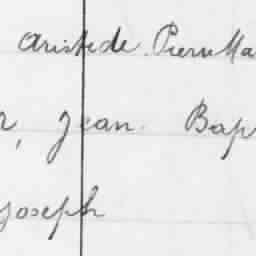 Aristide Pierre Ma
r, Jean Bap
Joseph